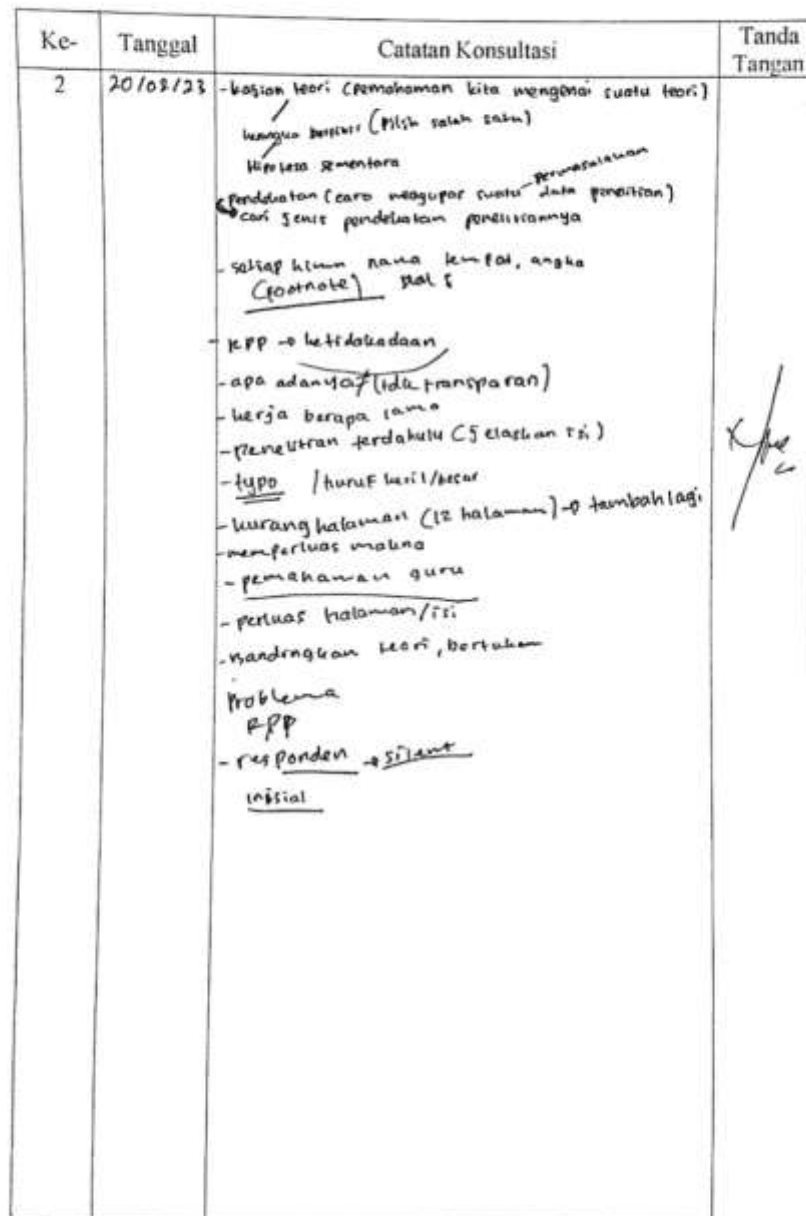 Ke-
Tanggal
Catatan Konsultasi
Tanda
Tangan
2
20/08/23
- kajian teori (pemahaman kita mengenai suatu teori)
kerangka berpikir (pilih salah satu)
Hipotesa sementara
permasalahan
pendekatan (cara mengupas suatu data penelitian)
cari jenis pendekatan penelitiannya
- setiap nama tempat, angka
(footnote)
- RPP → ketidakadaan
- apa adanya (tdk transparan)
- kerja berapa lama
- penelitian terdahulu (jelaskan isi)
- typo / huruf kecil/besar
- kurang halaman (12 halaman) → tambah lagi
- memperluas makna
- pemahaman guru
- perluas halaman/isi
- Bandingkan teori,
Problema
RPP
- responden → silent
inisial